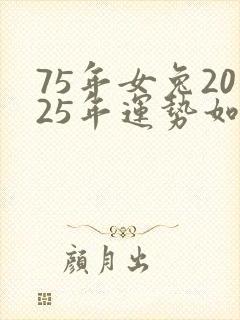 75年女兔20
25年運勢如
顏月出